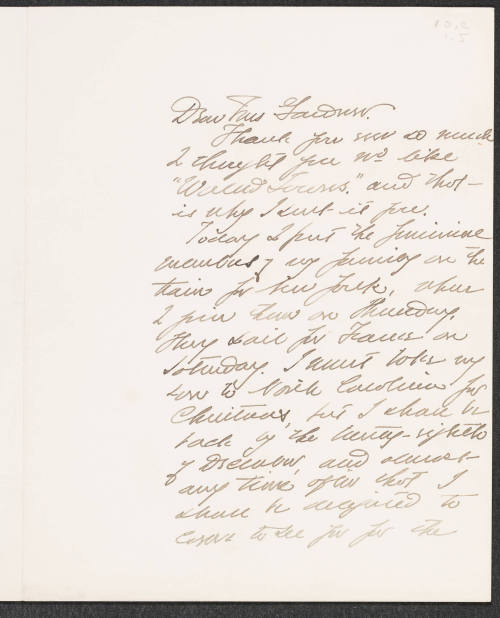 Dear Mrs Gardner.
Thank you ever so much
I thought you wd like
and that
is why I sent it you.
Today I put the feminine
members of my family on the
train for New York, where
I join them on Thursday.
They sail for France on
Saturday. I must take my
son to North Carolina for
Christmas, but I shall be
back by the twenty-eighth
of December, and almost
any time after that I
shall be delighted to
come to see you for the